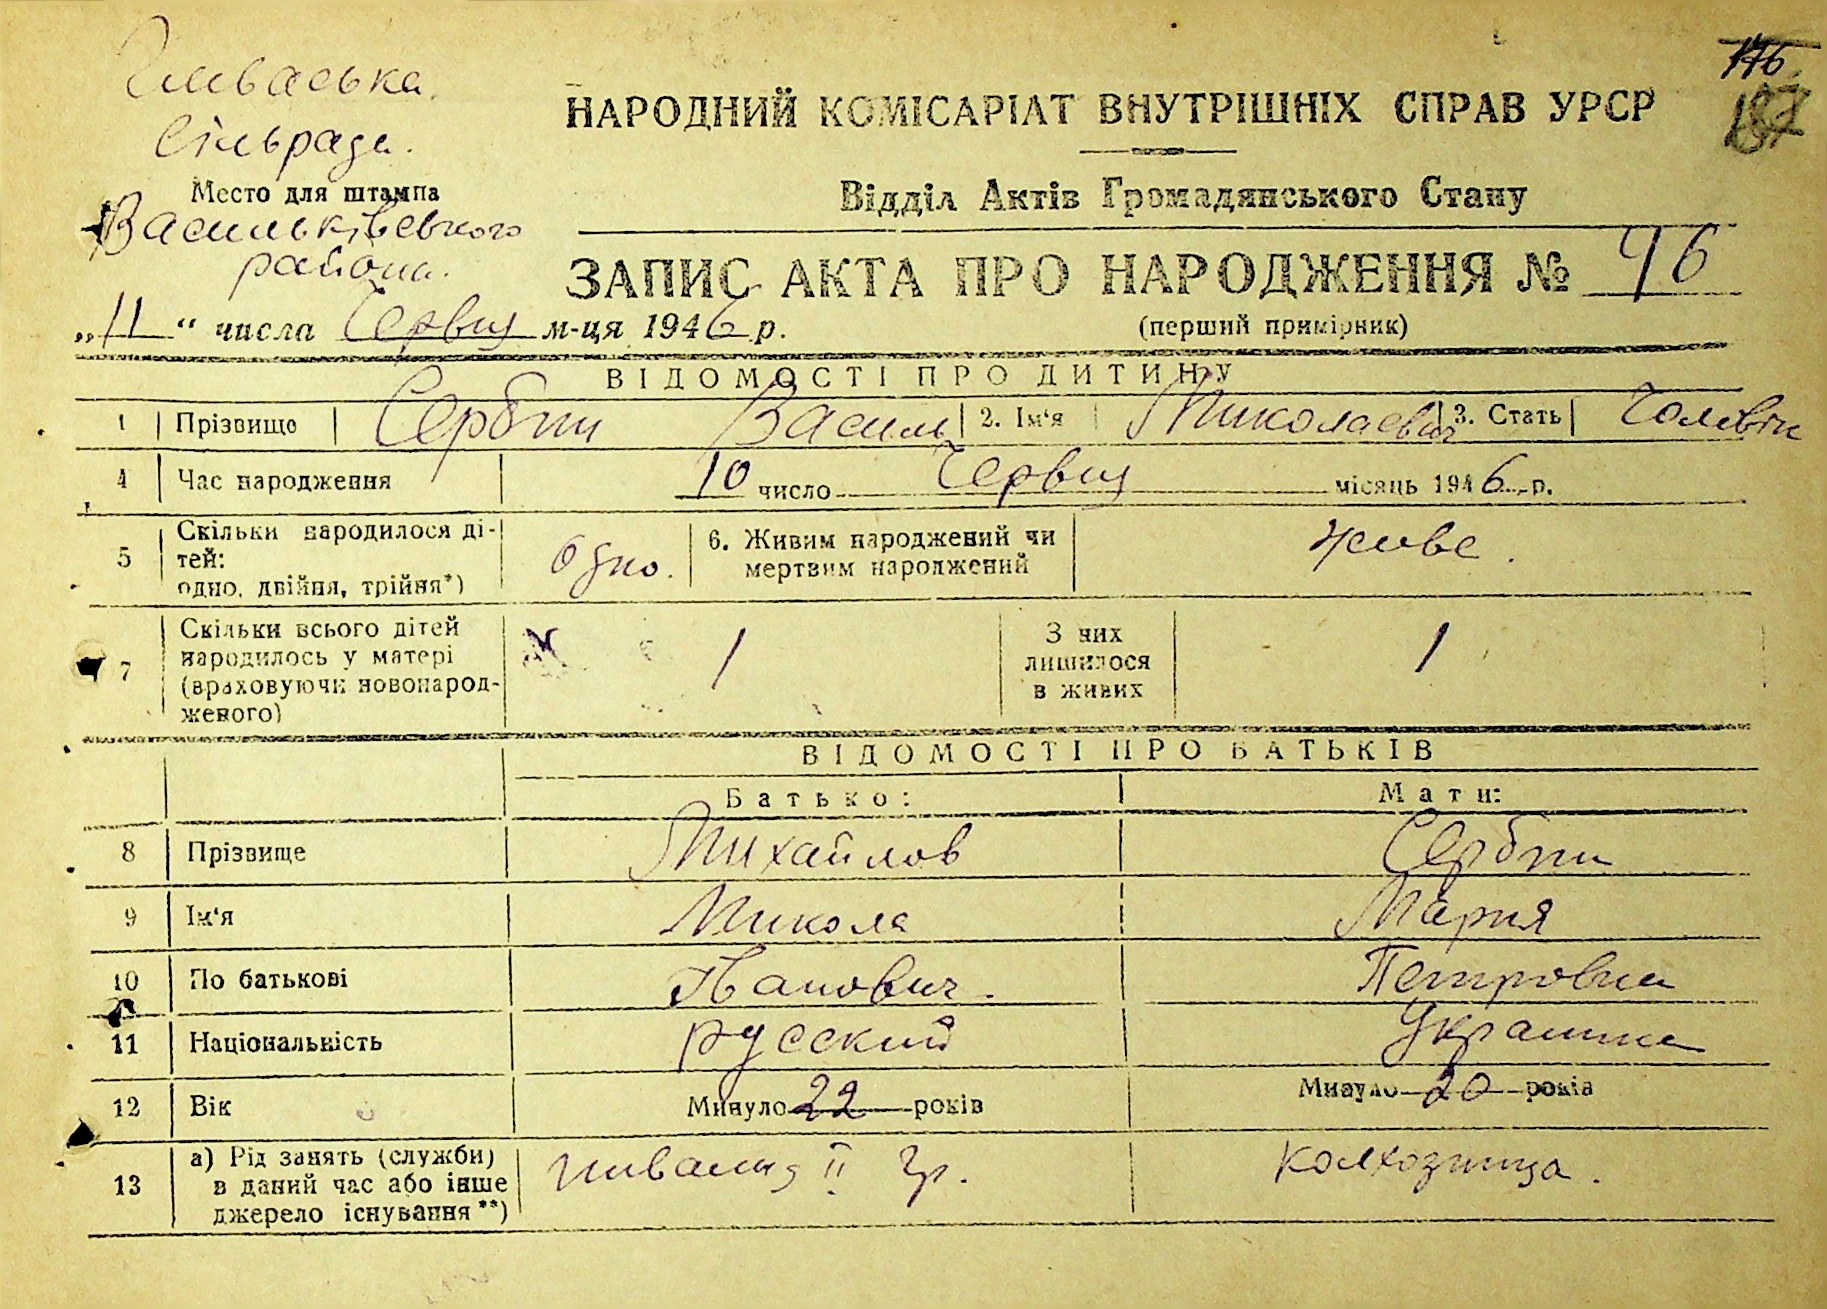 сільрада.
Место для штампа
Васильківського
района.
176
187
НАРОДНИЙ КОМІСАРІАТ ВНУТРІШНІХ СПРАВ УРСР
Відділ Актів Громадянського Стану
ЗАПИС АКТА ПРО НАРОДЖЕННЯ № 46
(перший примірник)
„11“ числа Червня м-ця 1946 р.
ВІДОМОСТІ ПРО ДИТИНУ
1 Прізвище Сербин Василь 2. Ім'я Миколаевич 3. Стать Чоловік
4 Час народження 10 число Червня місяць 1946 р.
5 Скільки народилося ді-
тей:
одно, двійня, трійня*) Одно. 6. Живим народжений чи
мертвим народжений живе.
7 Скільки всього дітей
народилось у матері
(враховуючи новонарод-
женого) 1 З них
лишилося
в живих 1
ВІДОМОСТІ ПРО БАТЬКІВ
Батько: Мати:
8 Прізвище Михайлов Сербин
9 Ім'я Микола Мария
10 По батькові Иванович. Петровна
11 Національність русский Украинка
12 Вік Минуло 22 років Минуло 20 років
13 а) Рід занять (служби)
в даний час або інше
джерело існування**) инвалид II гр. колхозница.